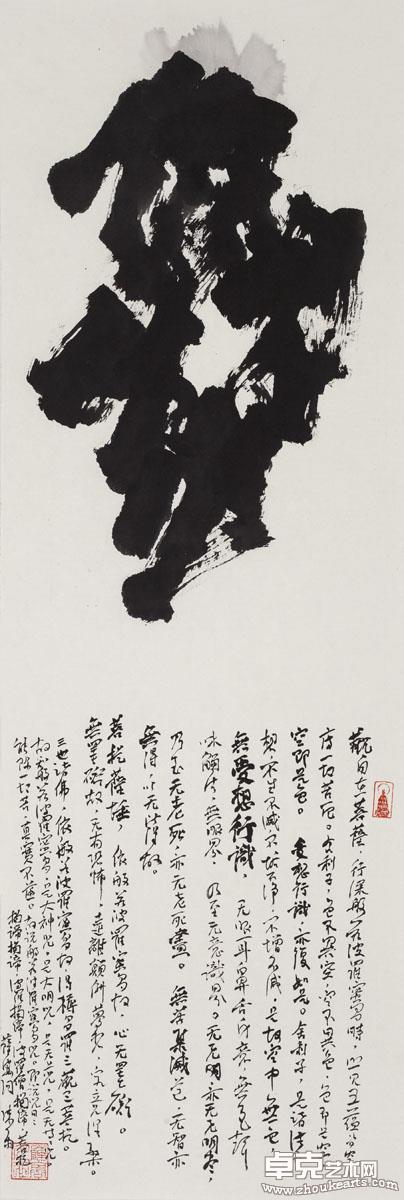 觀自在菩薩，行深般若波羅蜜多時，照見五蘊皆空
度一切苦厄。舍利子，色不異空，空不異色，色即是空
空即是色。受想行識，亦復如是。舍利子，是諸法
想不生不滅不垢不淨，不增不減，是故空中無色
無受想行識，无眼耳鼻舌身意，無色聲
味觸法，無眼界，乃至无意識界。无无明亦无无明盡，
乃至无老死，亦无老死盡。無苦集滅道，无智亦
無得，以无所得故。
菩提薩埵，依般若波羅蜜多故，心无罣礙。
無罣礙故，无有恐怖，遠離顛倒夢想，究竟涅槃。
三世諸佛，依般若波羅蜜多故，得耨多羅三藐三菩提。
故般若波羅蜜多是大神咒，是大明咒，是无上咒，是无等等咒。
能除一切苦，真實不虛。故說般若波羅蜜多咒。即說咒曰：
揭諦揭諦，波羅揭諦，波羅僧揭諦，菩提
薩婆訶
卓克艺术网
www.zhoukearts.com